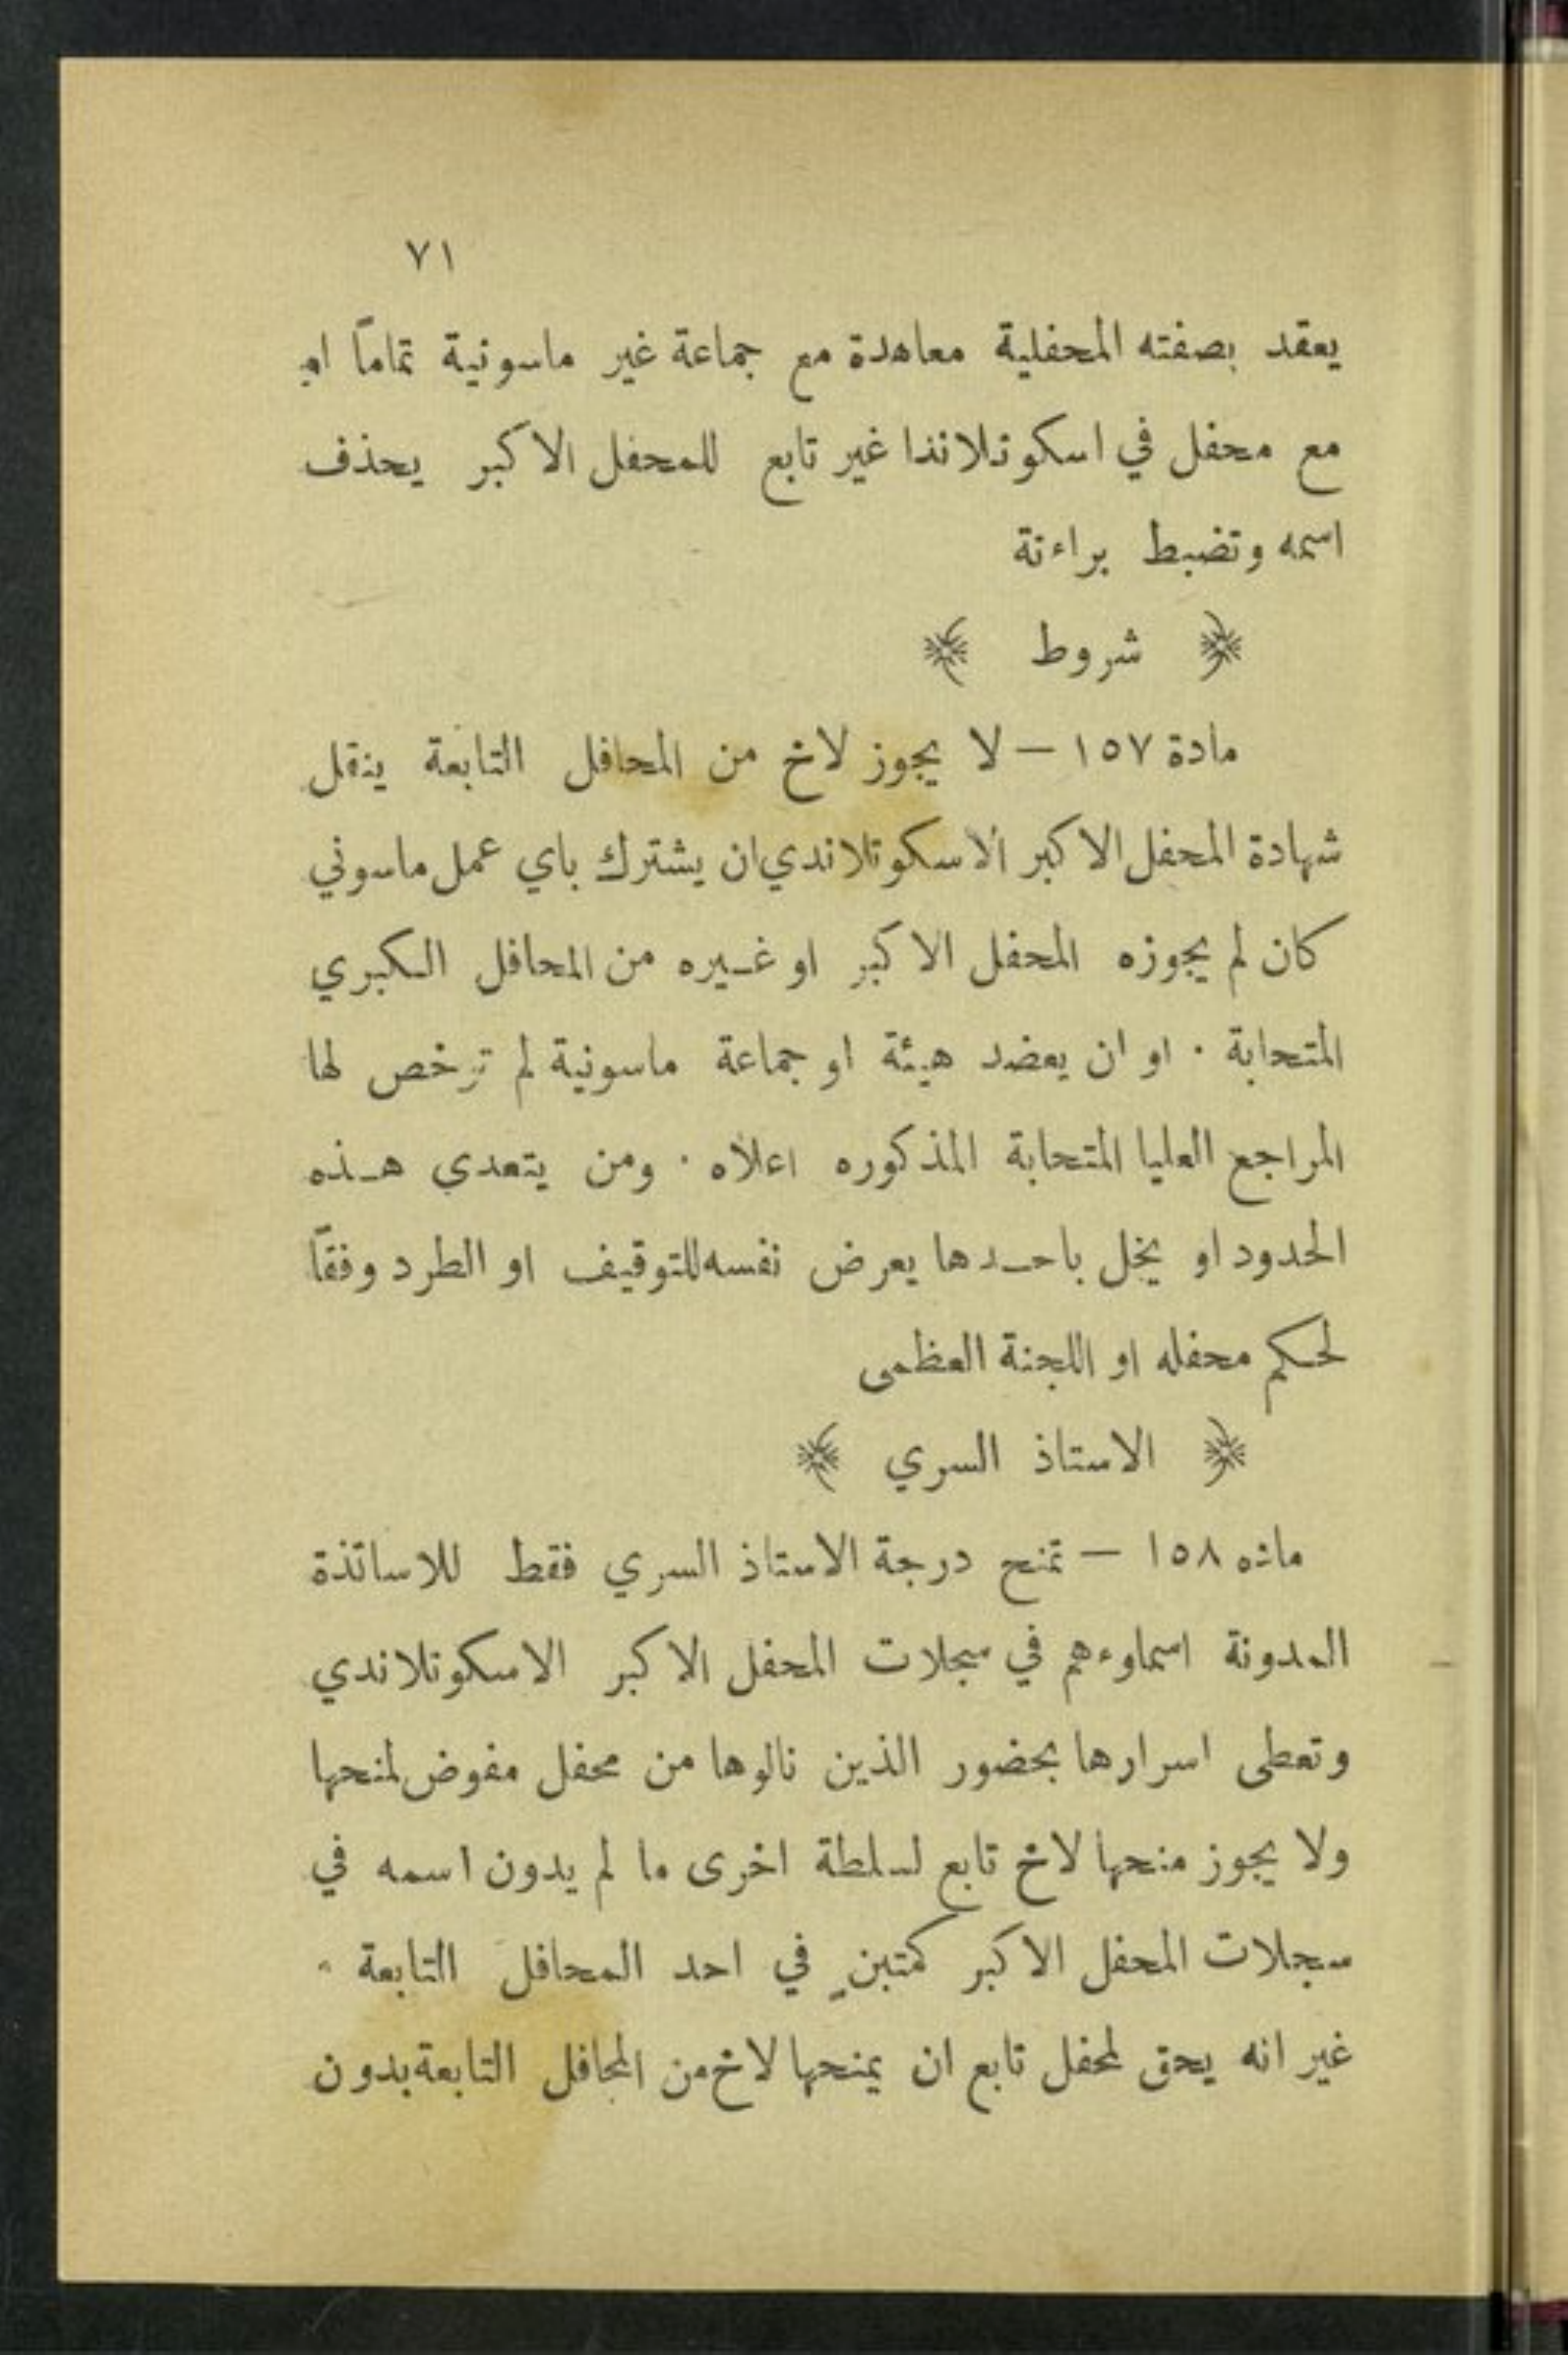 ٧١
يعقد بصفته المحفلية معاهدة مع جماعة غير ماسونية تماماً او
مع محفل في اسكوتلاندا غير تابع للمحفل الاكبر يحذف
اسمه وتضبط براءتة
﴿ شروط ﴾
مادة ١٥٧ — لا يجوز لاخ من المحافل التابعة ينقل
شهادة المحفل الاكبر الاسكوتلاندي ان يشترك باي عمل ماسوني
كان لم يجوزه المحفل الاكبر او غيره من المحافل الكبري
المتحابة . او ان يعضد هيئة او جماعة ماسونية لم ترخص لها
المراجع العليا المتحابة المذكوره اعلاه . ومن يتعدي هذه
الحدود او يخل باحدها يعرض نفسه للتوقيف او الطرد وفقاً
لحكم محفله او اللجنة العظمى
﴿ الاستاذ السري ﴾
ماده ١٥٨ — تمنح درجة الاستاذ السري فقط للاساتذة
المدونة اسماوءهم في سجلات المحفل الاكبر الاسكوتلاندي
وتعطى اسرارها بحضور الذين نالوها من محفل مفوض لمنحها
ولا يجوز منحها لاخ تابع لسلطة اخرى ما لم يدون اسمه في
سجلات المحفل الاكبر كمتبنٍ في احد المحافل التابعة .
غير انه يحق لمحفل تابع ان يمنحها لاخ من المحافل التابعة بدون